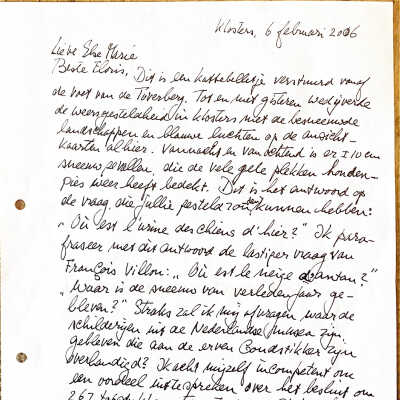 Klosters, 6 februari 2006
Lieve Else Marie
Beste Floris, Dit is een kattebelletje verstuurd vanaf
de voet van de Toverberg. Tot en met gisteren wedijverde
de weersgesteldheid in Klosters met de besneeuwde
landschappen en blauwe luchten op de ansicht-
kaarten alhier. Vannacht en vanochtend is er ± 10 cm
sneeuw gevallen, die de vele gele plekken honden-
pies weer heeft bedekt. Dit is het antwoord op
de vraag die jullie gesteld zouden kunnen hebben:
"Où est l'urine des chiens d'hier?" Ik para-
fraseer met dit antwoord de lastiger vraag van
François Villon: "Où est la neige d'antan?"
"Waar is de sneeuw van verleden jaar ge-
bleven?" Straks zal ik mij afvragen waar de
schilderijen uit de Nederlandse musea zijn
gebleven die aan de erven Goudstikker zijn
overhandigd? Ik acht mijzelf incompetent om
een oordeel uit te spreken over het besluit om
267